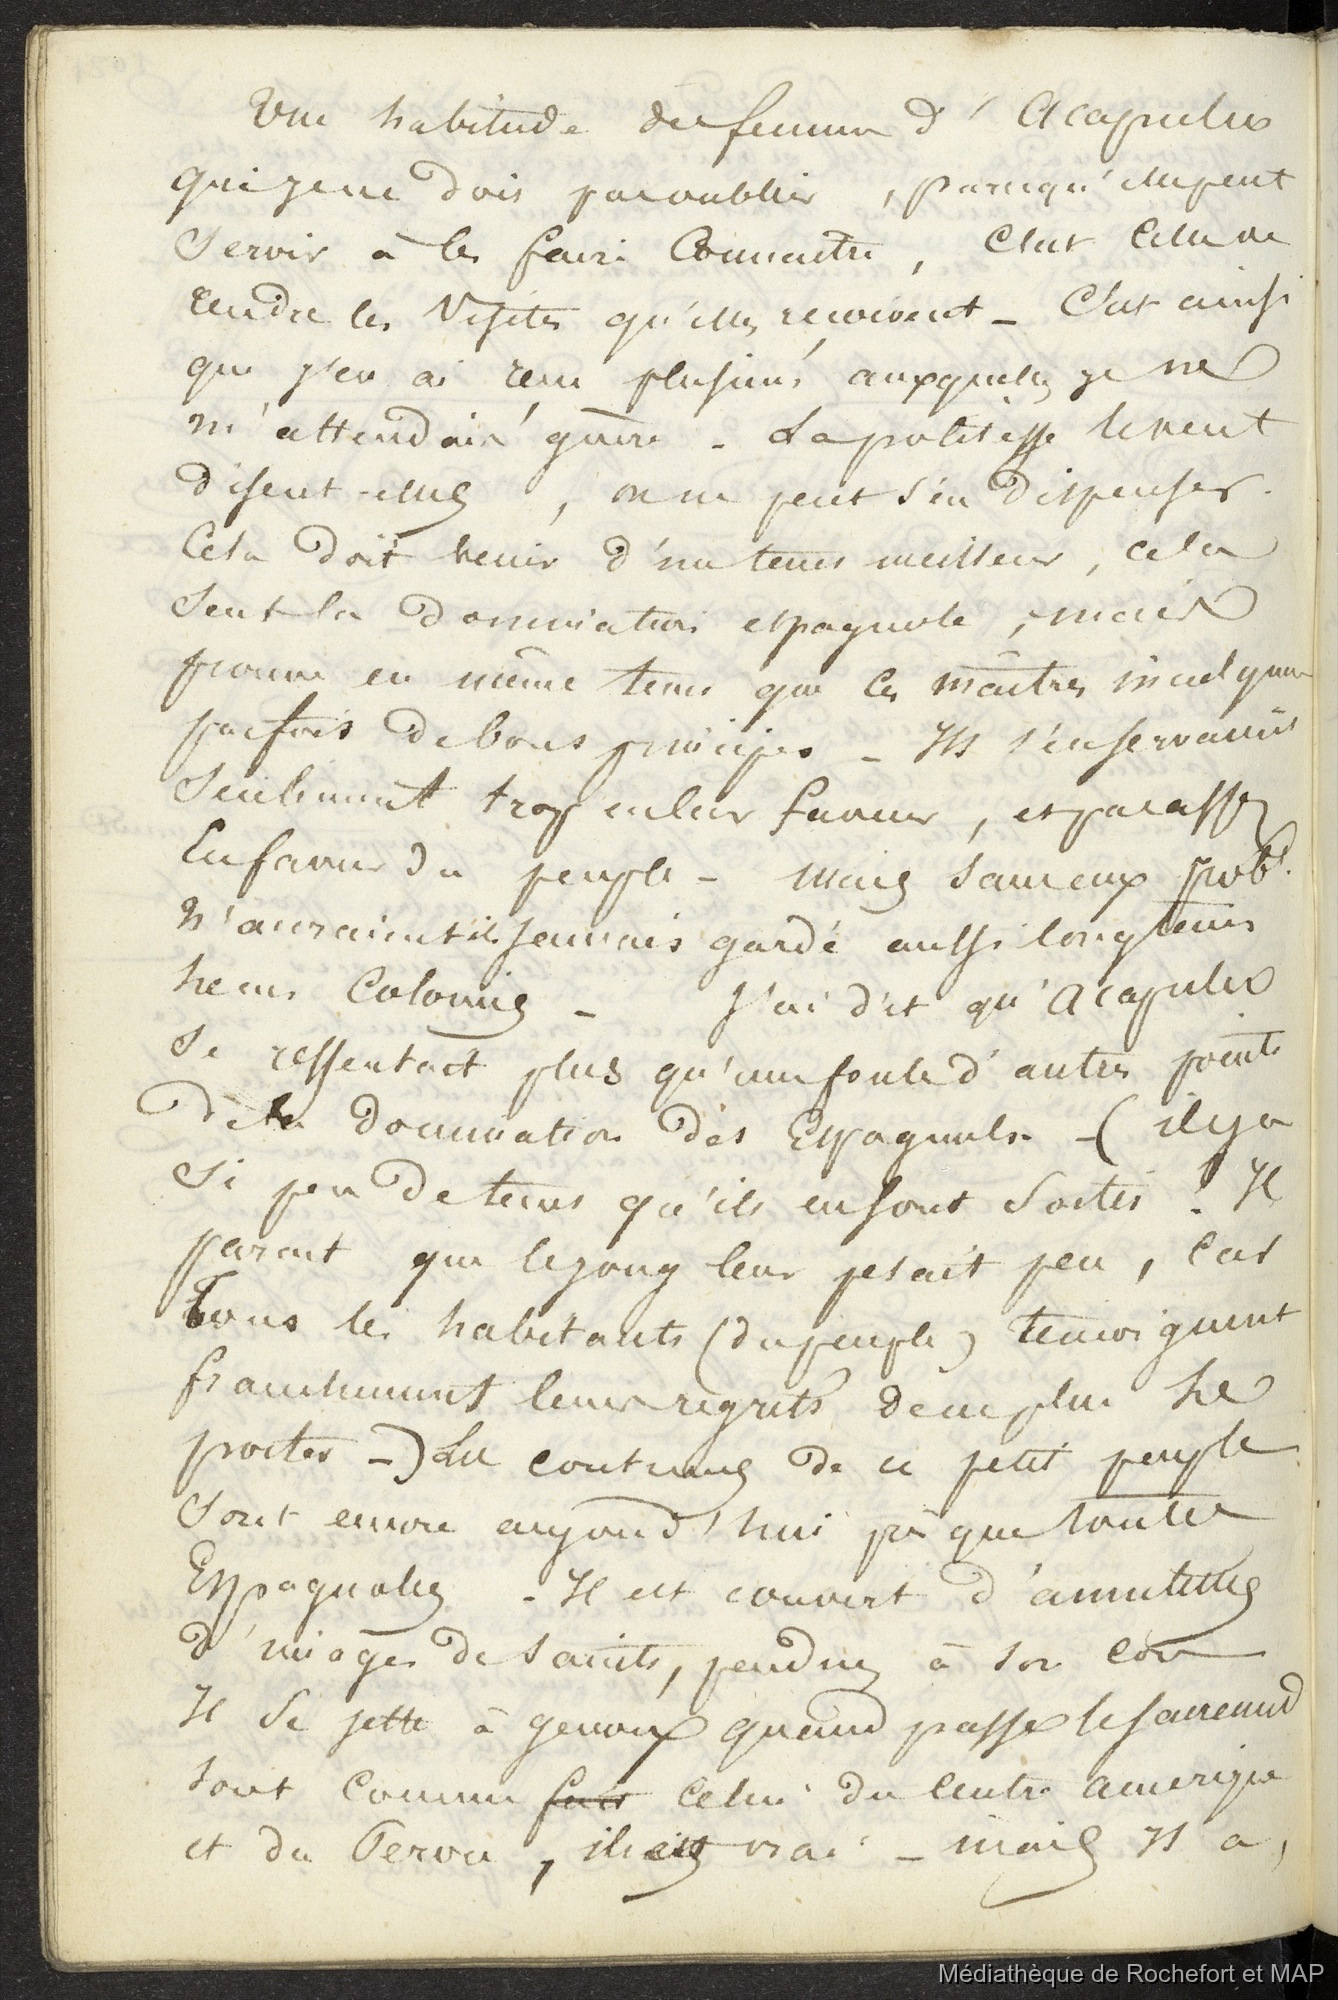 Une habitude des femmes d'Acapulco
que je ne dois pas oublier, parcequ'elle peut
Servir à les faire Connaitre, C'est Celle de
rendre les Visites qu'elles reçoivent _ C'est ainsi
que j'en ai reçu plusieurs auxquelles je ne
m'attendais guère _ La politesse le veut
disent-elles, on ne peut s'en dispenser.
Cela doit venir d'un tems meilleur, cela
Sent la domination espagnole, mais
prouve en même tems que ces maîtres
parfois de bons principes _ Ils s'en servaient
Seulement trop en leur faveur, et pas assez
En faveur du peuple _ mais sans eux prob.t
n'auraient ils jamais gardé aussi longtems
Colonies _ J'ai dit qu'Acapulco
Se ressentait plus qu'une foule d'autres points
De la domination des Espagnols _ (il y a
Si peu de tems qu'ils en sont sortis ! Il
parait que le joug leur pesait peu, Car
Tous les habitants (du peuple) temoignent
franchement leurs regrets de ne plus le
porter _) Les coutumes de ce petit peuple
Sont encore aujourd'hui presque toutes
Espagnoles _ Il est couvert d'amulettes
d'images de Saints, pendues à son cou
Il Se jette à genoux quand passe le sacrement
tout comme Celui du Centre amerique
et du Perou, il est vrai _ mais Il a,
Médiathèque de Rochefort et MAP